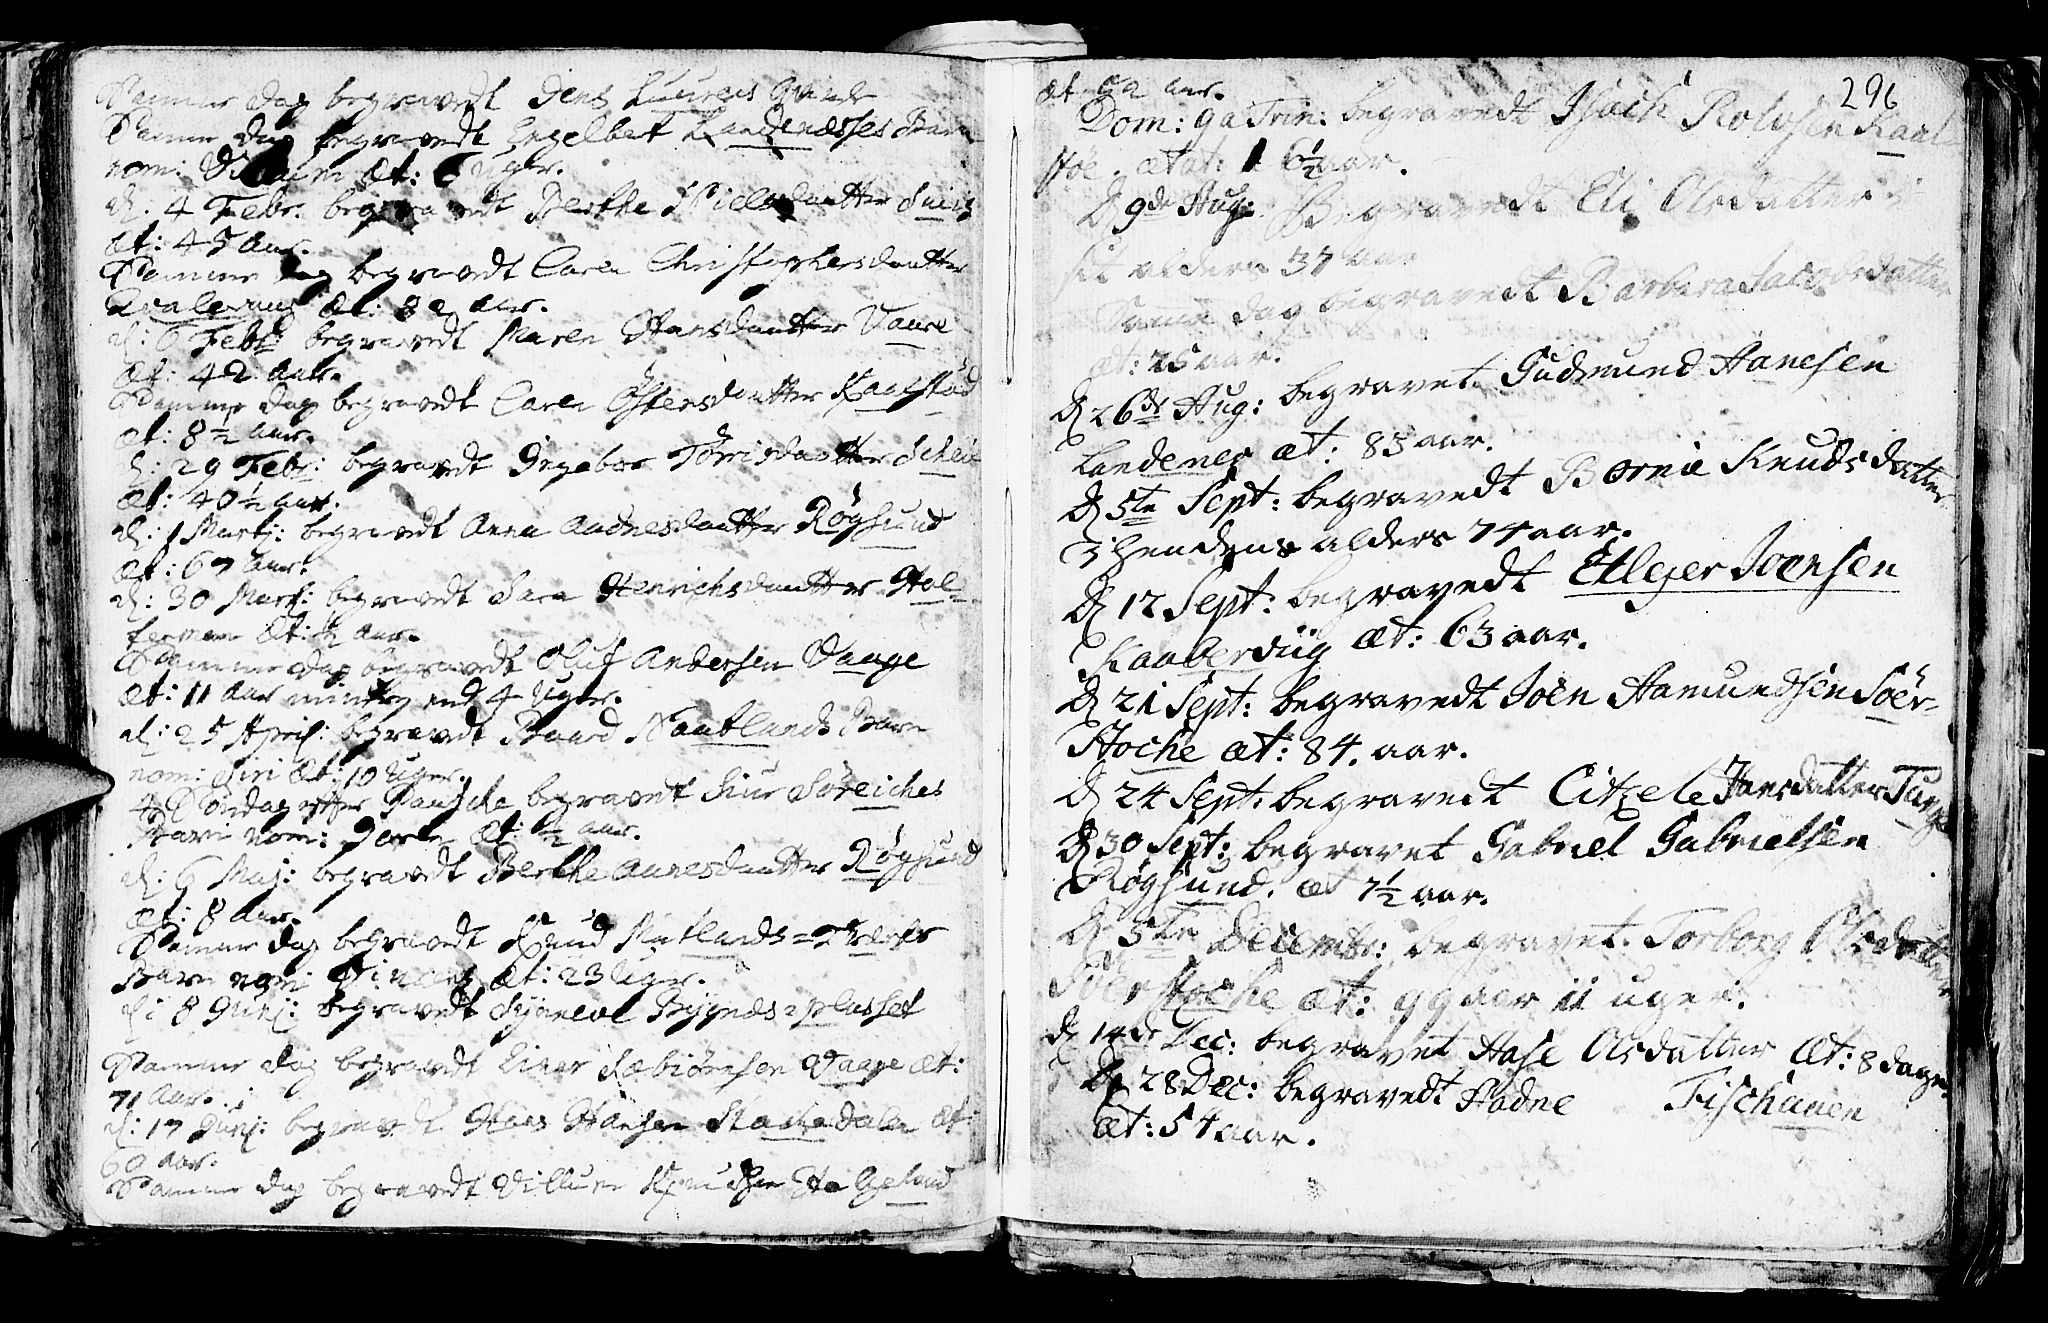 Samme dag begravedt Jens Laurens
Samme dag begravedt Engelbret Landenæsses Barn
nom: æt: 6 uger.
d: 4 Febr. begravedt Berthe Nielsdaatter
æt: 45 aar.
Samme dag begravedt Caren Christophersdaatter
Qvalevaag æt: 82 aar.
d: 6 Febr: begravedt Maren Hansdaatter Vaare
æt: 42 aar.
Samme dag begravedt Caren Østensdaatter Kaalstad
æt: 8½ aar.
d: 29 Febr: begravedt Ingebor Tørrisdaatter
æt: 40½ aar.
d: 1 Martj: begravedt Anna Audnesdaatter Røgsund
æt: 67 aar.
d: 30 Mart: begravedt Sara Henrichsdaatter Hol-
æt: ½ aar.
Samme dag begravedt Oluf Andersen Vaage
æt: 11 aar mindre end 4 uger.
d: 25 April: begravedt Baard Natlands Barn
nom: Siri æt: 10 uger.
4 Søndag efter Paasche begravet Siur Søreiches
Barn nom: æt: ½ aar.
d: 6 Maj: begravedt Berthe Aunesdaatter Røgsund
æt: 8 aar.
Samme dag begravedt Knud Matlands
Barn nom: æt: 23 uger.
d: 8 Junj: begravedt Synneve Bygnæs-plasset
Samme dag begravedt Einar Sæbiørnsen Vaage æt:
71 aar.
d: 17 Junj: begravedt Hans Hansen Stochedalen æt:
60 aar.
Samme dag begravedt Villum Knudsen Hageland
296
æt 52 aar.
Dom: 9a Trin: begravedt Isach Rolvsen Kaal-
støe. ætat: 16½ aar.
D 9de Aug: Begravedt Eli Olsdatter i
sit alders 37 aar
Samme dag begravedt Barbara Jacobsdatter
æt: 25 aar.
D 26de Aug: begravet Gudmund Hansen
Landenes æt: 83 aar.
D 5te Sept: begravedt Bornie Knudsdatter
i hendes alders 74 aar.
D 12 Sept: begravedt Etlejer Joensen
Kaaberviig æt: 63 aar.
D 21 Sept: begravedt Joen Hamundsen Søer-
Stoche æt: 84. aar.
D 24 Sept: begravedt Citzele Hansdatter Tang
D 30 Sept: begravet Gabriel Gabrielsen
Røgsund. æt 7½ aar.
D 5te Decembr: begravet Torborg Olsdatter
Søerstoche æt: 99 aar 11 uger.
D 14de Dec: begravet Hase Olsdatter æt: 8 dage
D 28 Dec: begravedt Hadne Fischaaen
æt: 54 aar.